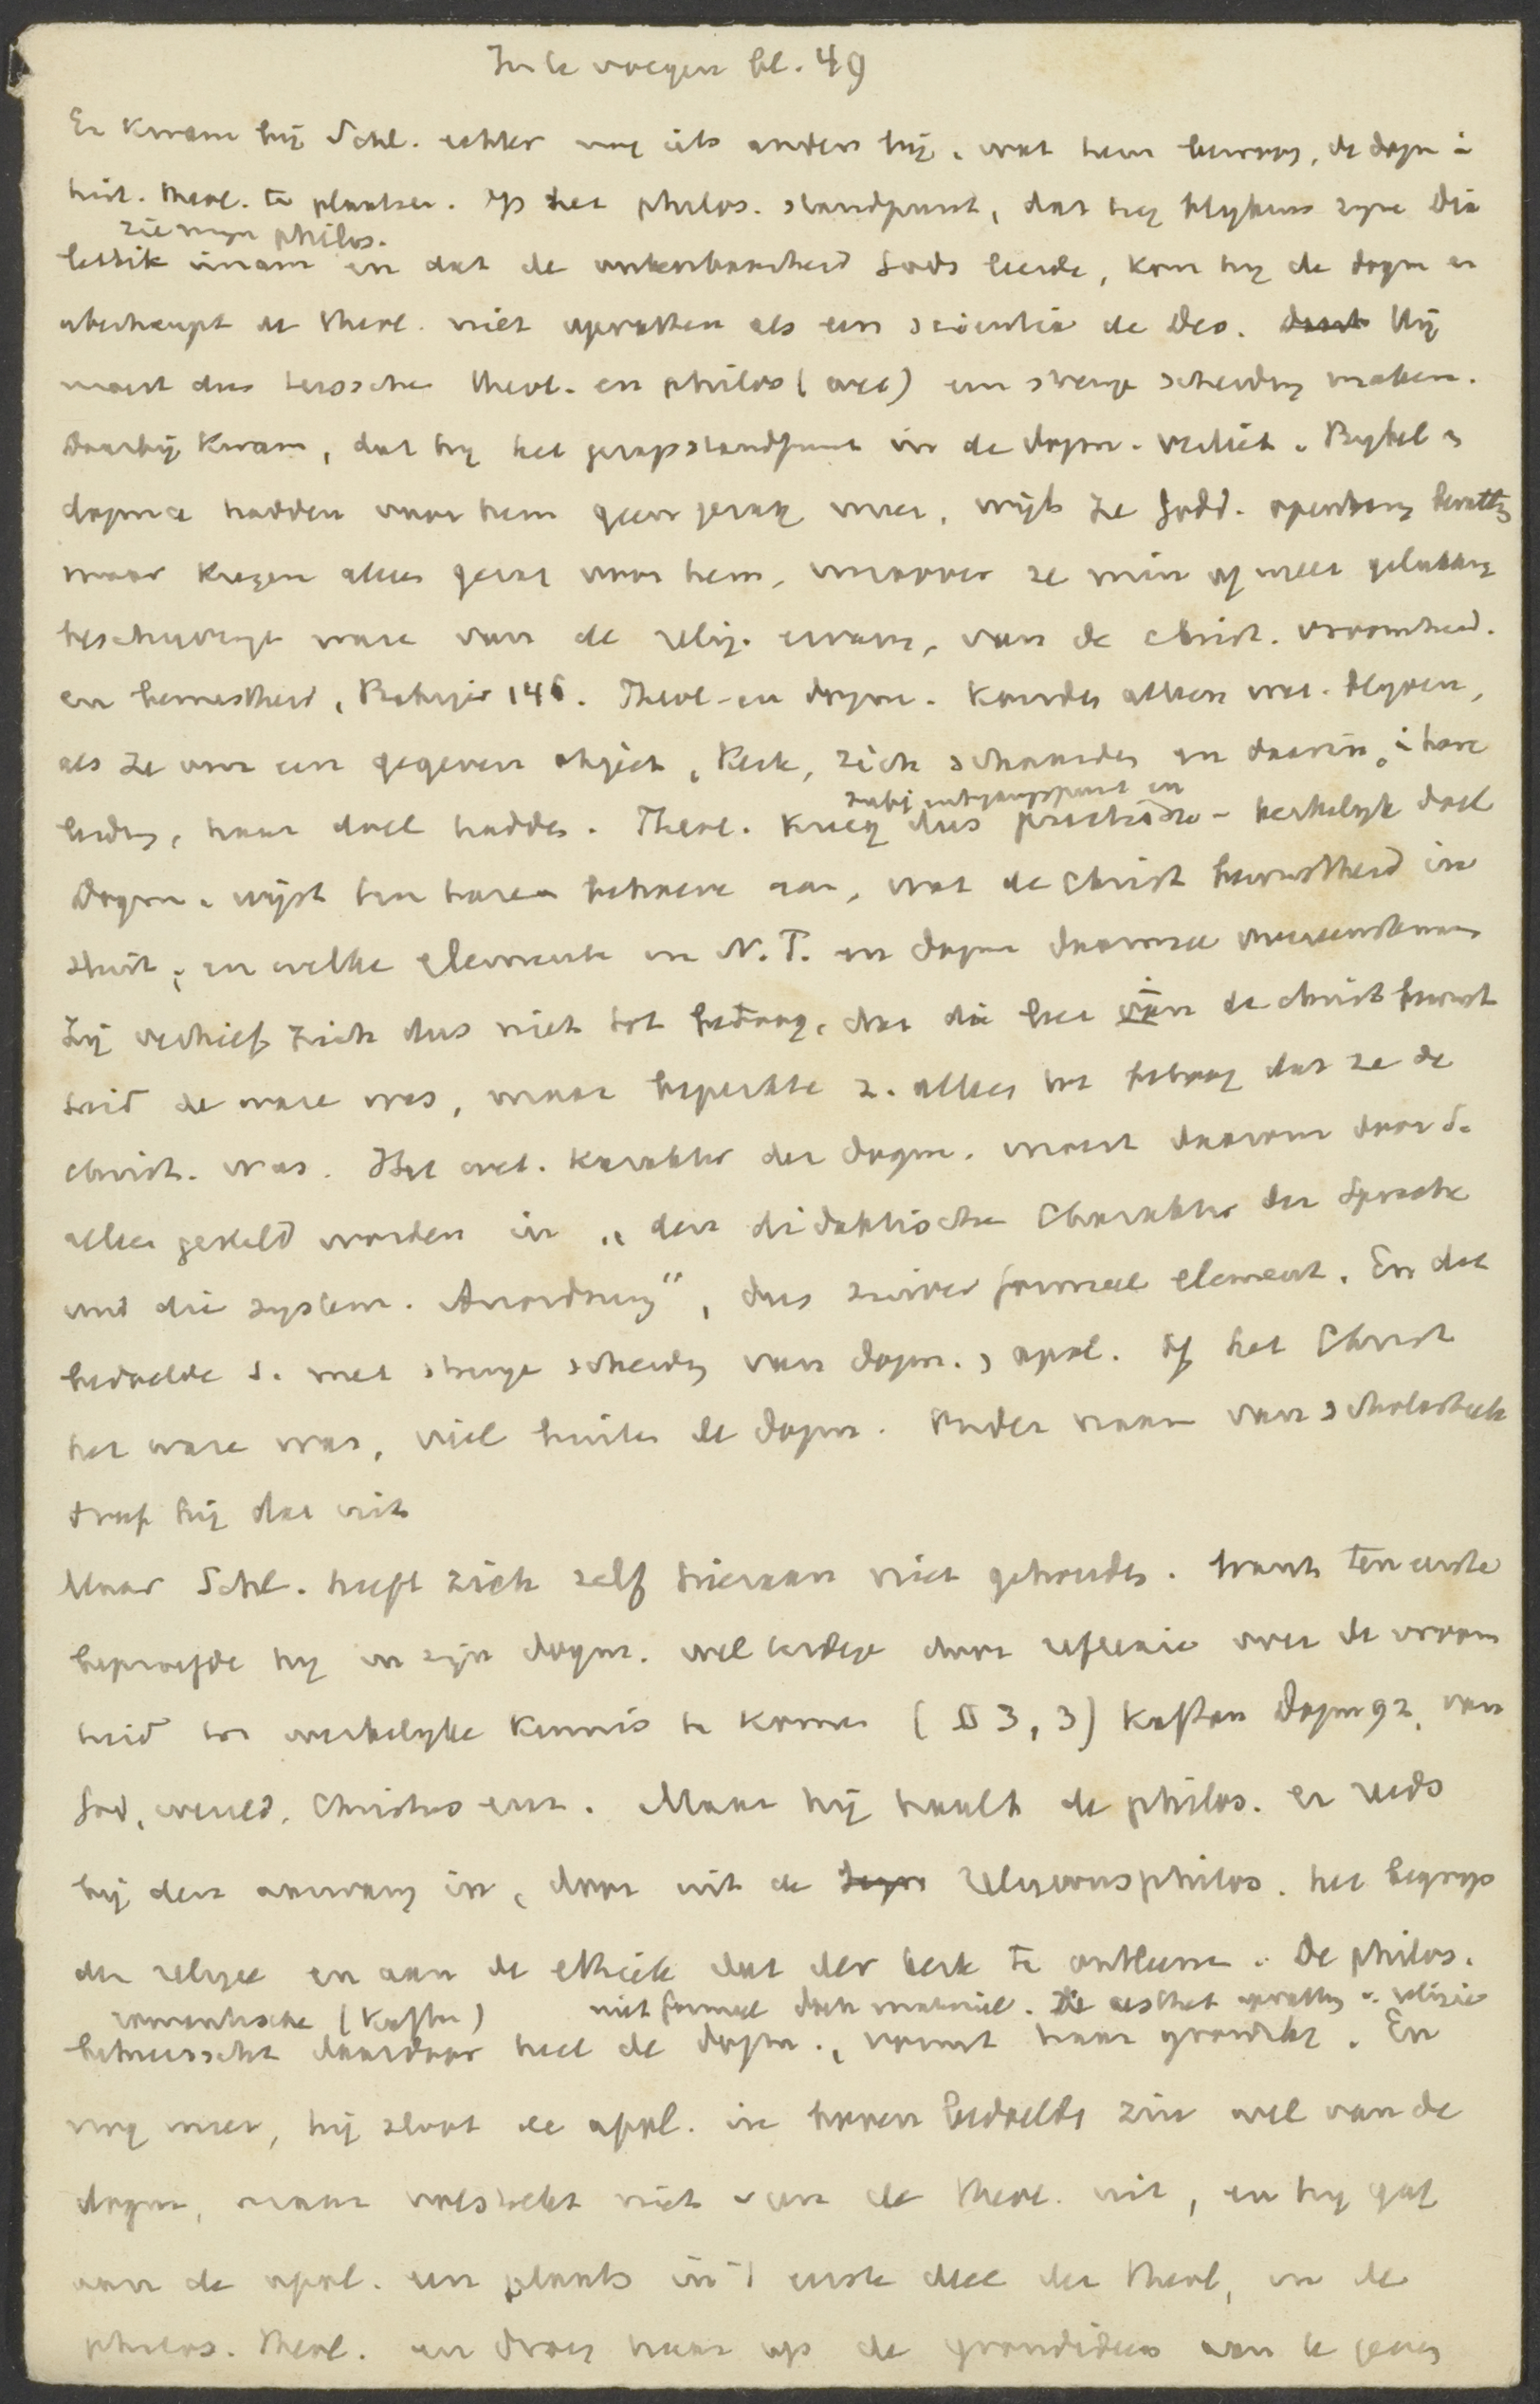 In te voegen bl. 49
Er kwam bij Schl. echter nog iets anders bij, wat hem bewoog, de dogm i
hist. theol. te plaatsen. Op het philos. standpunt, dat hij blijkens zijne Dia
zie mijn philos.
lektik innam en dat de onkenbaarheid Gods leerde, kon hij de dogm en
überhaupt de theol. niet opvatten als een scientia de Deo. Hij
moest dus tusschen theol. en philos (wet) een strenge scheiding maken.
Daarbij kwam, dat hij het gezagsstandpunt in de dogm. verliet. Bijbel en
dogma hadden voor hem geen gezag meer, wijl ze Godd. openbaring bevatten
maar kregen alleen gezag voor hem, inzoover ze min of meer gelukkig
beschrijvingen waren van de relig. ervaring, van de christ. vroomheid.
en bewustheid, 146. Theol. en dogm. konden alleen wet. blijven,
als ze voor een gegeven object, Kerk, zich schaarden en daarin, i hare
leiding, haar doel hadden. Theol. kreeg dus practische - kerkelijk doel
subj. uitgangspunt en
Dogm. wijst ten haren behoeve aan, wat de Christ bewustheid in
sluit, en welke elementen in N.T. en dogm daarmee overeenkomen
Zij verhief zich dus niet tot betoog, dat die leer van de christ bewust
heid de ware was, maar beperkte z. alleen tot betoog dat ze de
christ. was. Het wet. karakter der dogm. moest daarom door S.
alleen gesteld worden in "den didaktischen Charakter der Sprache
und die system. Anordnung", dus zuiver formeel element. En dat
bedoelde S. met strenge scheiding van dogm. en apol. Of het Christ
het ware was, viel buiten de dogm. Onder naam van scholastiek
dreef hij dat uit
Maar Schl. heeft zich zelf hieraan niet gehouden. Want ten eerste
beproefde hij in zijn dogm. wel terdege door reflexie over de vroom
heid tot werkelijke kennis te komen (§ 3, 3) Kaftan Dogm 92, van
God, wereld, Christus enz. Maar hij haalt de philos. er reeds
bij den aanvang in, door uit de religionsphilos. het begrip
der religie en aan de ethiek dat der kerk te ontleenen. De philos.
romantische (Kaftan) niet formeel doch materieel. Die aesthet opvatting v. religie
beheerscht daardoor heel de dogm., vormt haar grondslag. En
nog meer, hij sloot de apol. in boven bedoelden zin wel van de
dogm, maar volstrekt niet van de theol. uit, en hij gaf
aan de apol. een plaats in 't eerste deel der theol, in de
philos. theol. en droeg haar op de grondideeën aan te geven